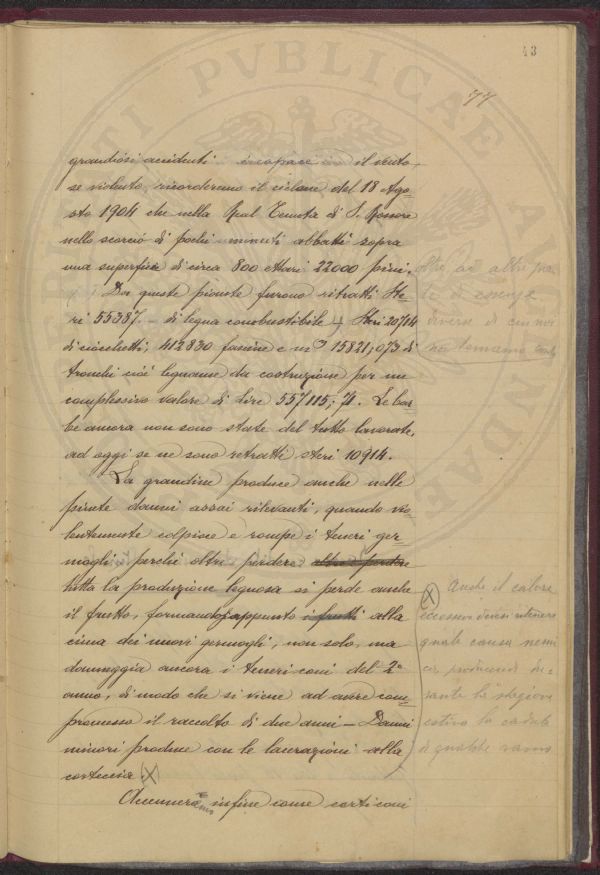 43
77
grandiosi accidenti è capace il vento,
se violento, ricorderemo il ciclone del 18 Ago-
sto 1904 che nella Real Tenuta di S. Rossore
nello scorcio di pochi minuti abbatté sopra
una superficie di circa 800 ettari 22000 pini,
oltre ad altre
di essenze
diverse di cui noi
non teniamo conto
Da queste piante furono ritratti Ste-
ri 55387 di legna combustibile, Steri 20714
di ciocchetti, 412830 fascine e m³ 15821,073 di
tronchi cioè legname da costruzione per un
complessivo valore di lire 557115,71. Le bar-
be ancora non sono state del tutto lavorate,
ad oggi se ne sono retratti steri 10914.
La grandine produce anche nelle
pinete danni assai rilevanti, quando vio-
lentemente colpisce e rompe i teneri ger-
mogli perché oltre perdere oltre a perdere
tutta la produzione legnosa si perde anche
il frutto, formandosi appunto i frutti alla
cima dei nuovi germogli, non solo, ma
danneggia ancora i teneri coni del 2°
anno, di modo che si viene ad avere com-
promesso il raccolto di due anni – Danni
minori produce con le lacerazioni alla
corteccia (X)
(X) Anche il calore
eccessivo devesi ritenere
quale causa nemi
ca, producendo du-
rante la stagione
estiva la caduta
di qualche ramo
Accenneremo infine come certi coni